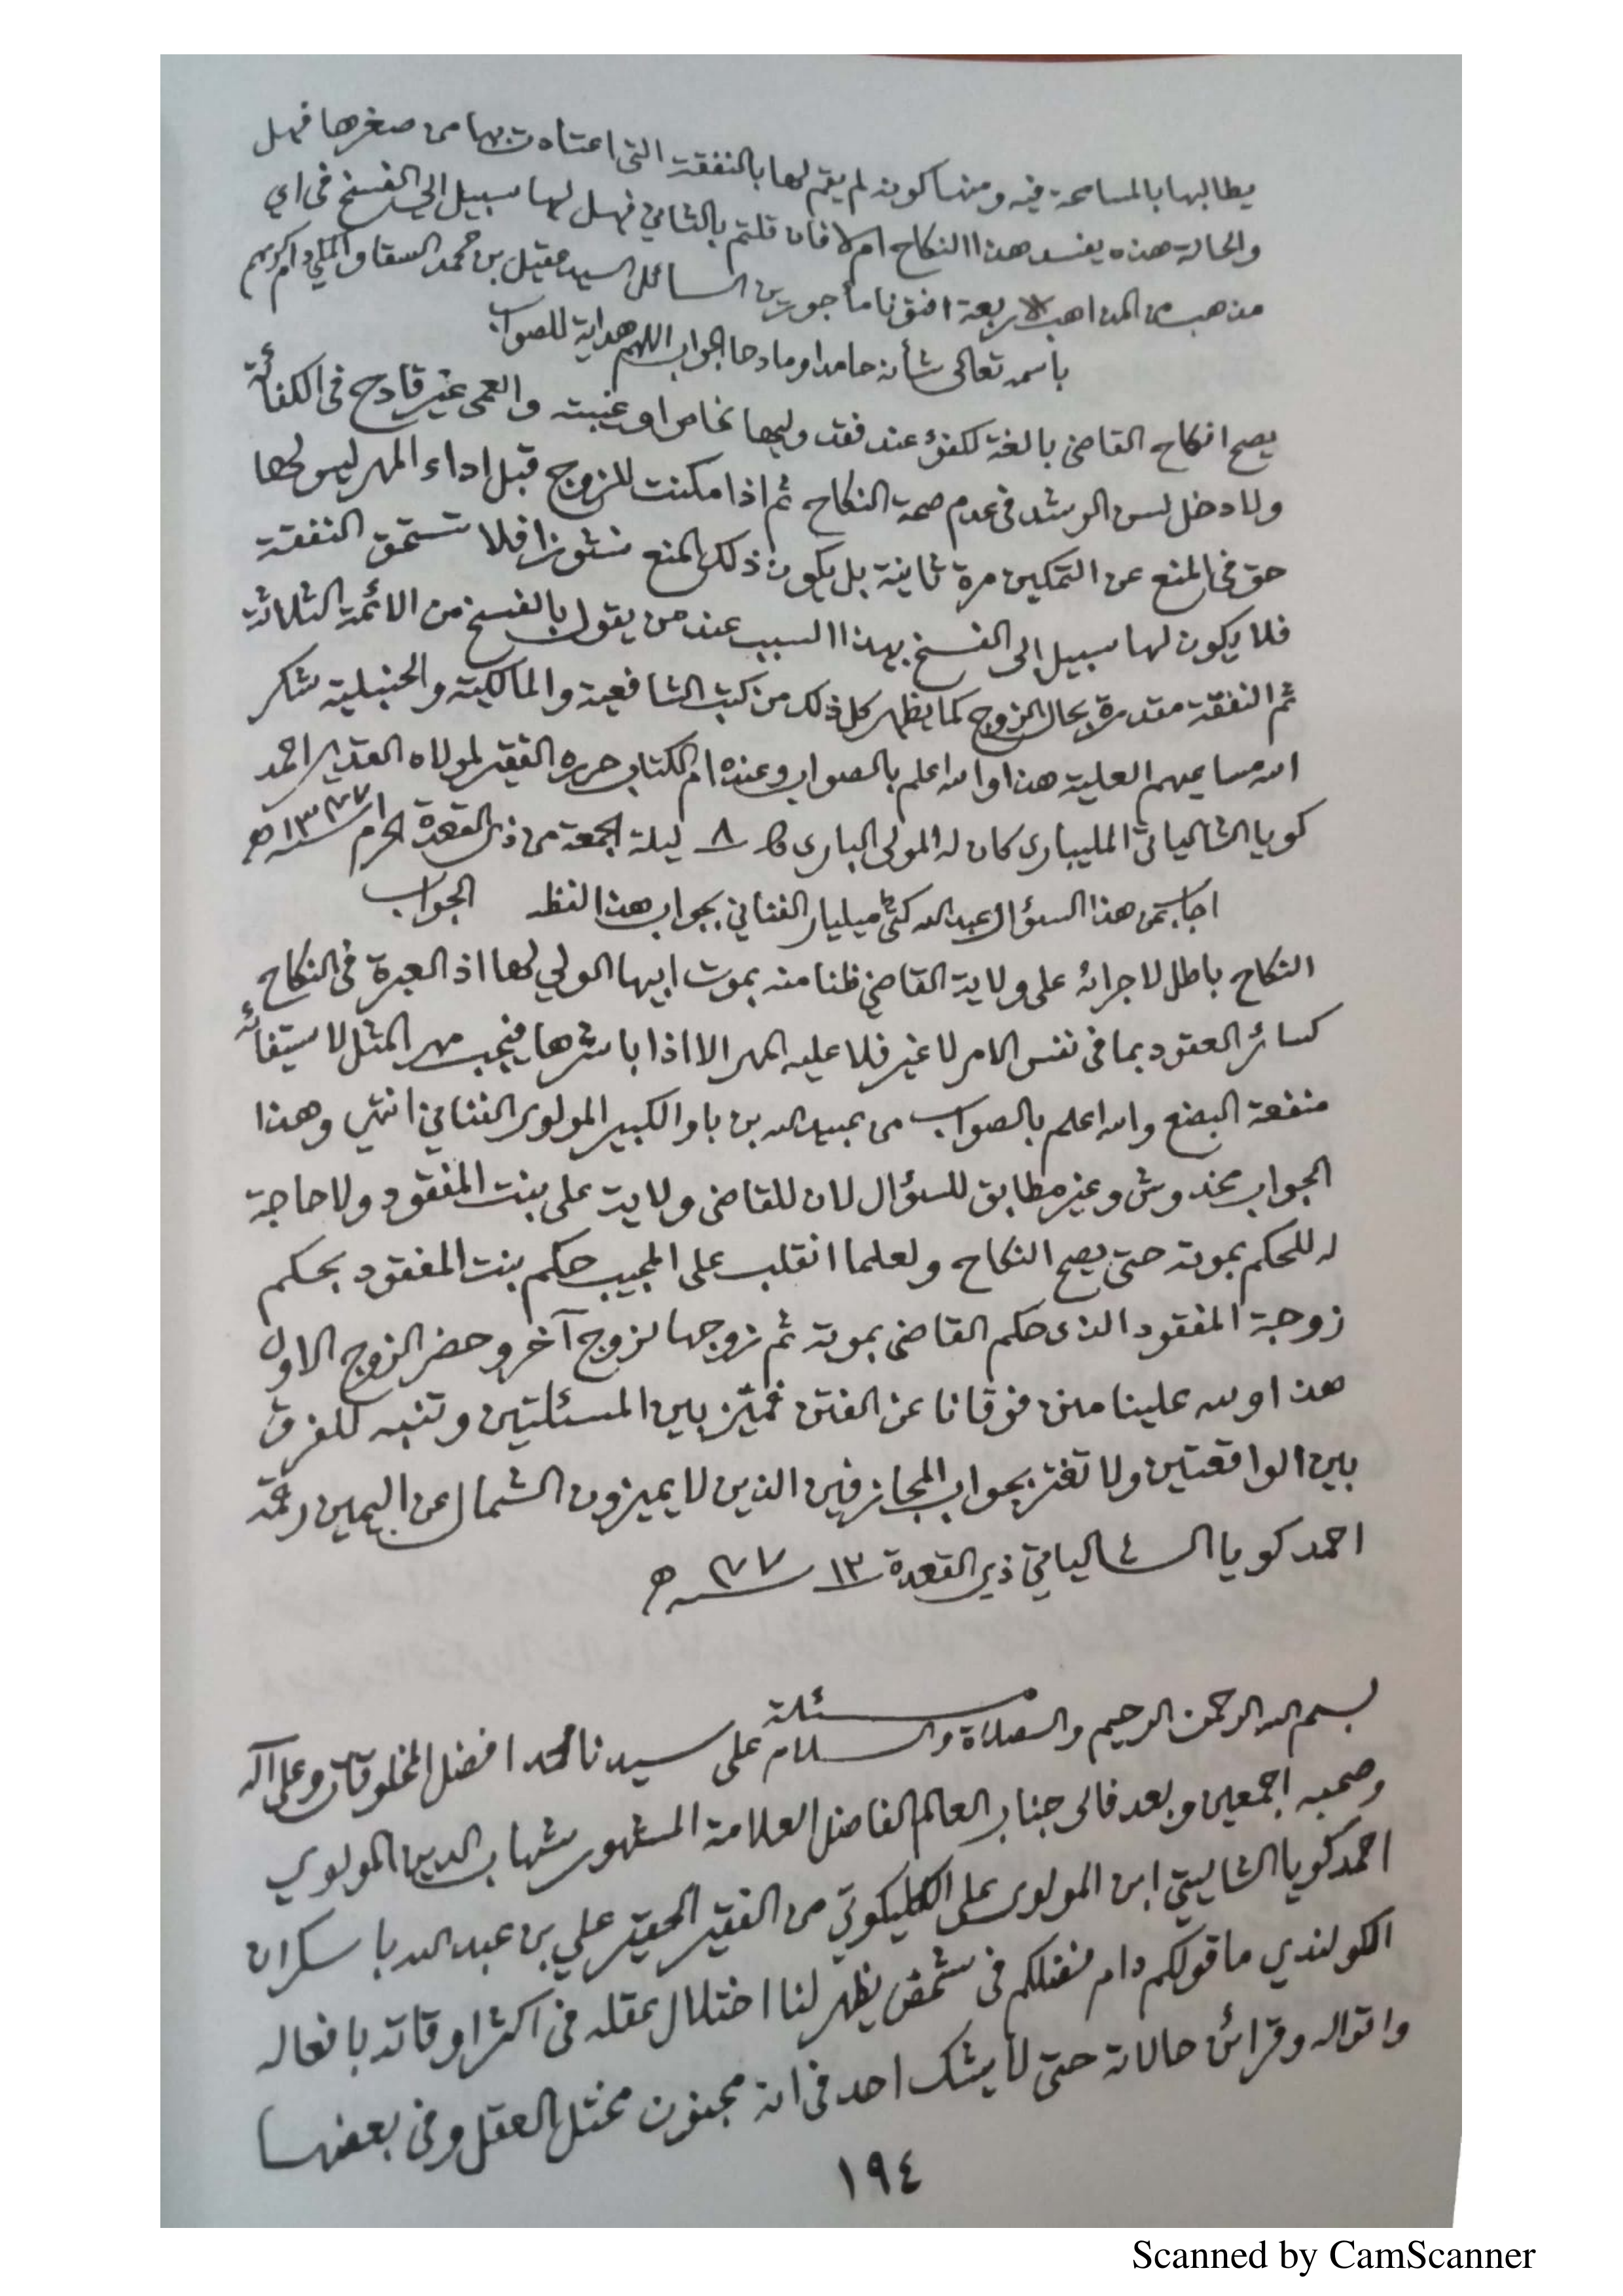 يطالبها بالمسامحة فيه ومنها كونه لم يقم لها بالنفقة التى اعتادت بها من صغرها فهل
والحالة هذه يفسد هذا النكاح ام لا فان قلتم بالثاني فهل لها سبيل الى الفسخ فى اي
مذهب من المذاهب الاربعة افتونا مأجورين السائل السيد عقيل بن محمد السقاف المكي دام كريم
باسمه تعالى شأنه حامدا ومادحا الجواب اللهم هداية للصواب
يصح انكاح القاضى بالغة لكفؤ عند فقد وليها الخاص او غيبته والعمى غير قادح فى الكفأة
ولا دخل لسن الرشد فى عدم صحة النكاح ثم اذا مكنت للزوج قبل اداء المهر ليس لها
حق فى المنع عن التمكين مرة ثانية بل يكون ذلك المنع نشوزا فلا تستحق النفقة
فلا يكون لها سبيل الى الفسخ بهذا السبب عند من يقول بالفسخ من الائمة الثلاثة
ثم النفقة مقدرة بحال الزوج كما يظهر كل ذلك من كتب الشافعية والمالكية والحنبلية شكر
الله مساعيهم العلية هذا والله اعلم بالصواب وعنده ام الكتاب حرره الفقير لمولاه القدير احمد
كويا الشالياتى المليبارى كان له المولى البارى ٨ ليلة الجمعة من ذى القعدة الحرم ١٣٧٧ سنه ھ
اجاب عن هذا السؤال عبد الله كتى ميليار الفنانى بجواب هذا لفظه الجواب
النكاح باطل لاجرائه على ولاية القاضي ظنا منه بموت ابيها الولي لها اذ العبرة فى النكاح
كسائر العقود بما فى نفس الامر لا غير فلا عليه المهر الا اذا باشرها فيجب مهر المثل لاستيفائه
منفعة البضع والله اعلم بالصواب من عبيد الله بن باوا الكبير المولوى الفنانى انتهى وهذا
الجواب مخدوش وغير مطابق للسؤال لان للقاضى ولاية على بنت المفقود ولا حاجة
له للحكم بموته حتى يصح النكاح ولعلما انقلب على المجيب حكم بنت المفقود بحكم
زوجة المفقود الذى حكم القاضى بموته ثم زوجها لزوج آخر وحضر الزوج الاول
هذا ولله علينا منن فوقانا عن الفتن فميّز بين المسئلتين وتنبه للفرق
بين الواقعتين ولا تغتر بجواب المجازفين الذين لا يميزون الشمال عن اليمين رقمه
احمد كويا الشالياتي ذى القعدة ١٣٧٧ سنه ھ
مسئلة
بسم الله الرحمن الرحيم والصلاة والسلام على سيدنا محمد افضل المخلوقات وعلى آله
وصحبه اجمعين وبعد فالى جناب العالم الفاضل العلامة المشهور شهاب الدين المولوي
احمد كويا الشاليتي ابن المولوى على الكليكوتي من الفقير الحقير علي بن عبد الله باسكران
الكولندي ما قولكم دام فضلكم فى شخص يظهر لنا اختلال عقله فى اكثر اوقاته بافعاله
واقواله وقرائن حالاته حتى لا يشك احد فى انه مجنون مختل العقل وفى بعضها
١٩٤
Scanned by CamScanner